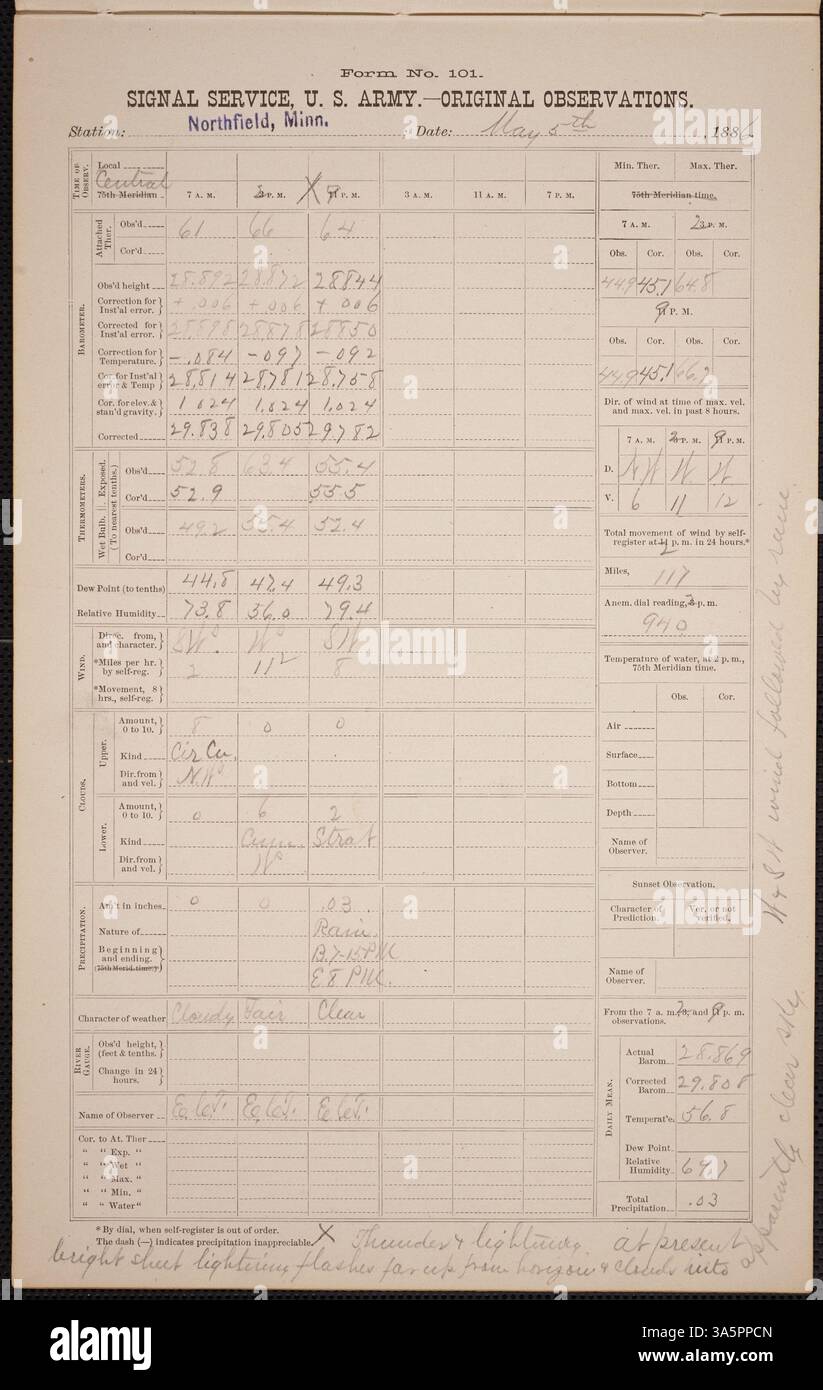 Form No. 101.
SIGNAL SERVICE, U. S. ARMY.—ORIGINAL OBSERVATIONS.
Station: Northfield, Minn. Date: May 5th, 1886
TIME OF OBSERV. Local Min. Ther. Max. Ther.
Central
75th Meridian 7 A. M. 2 P. M. X 9 P. M. 3 A. M. 11 A. M. 7 P. M. 75th Meridian time.
7 A. M. 2 P. M.
Attached Ther. Obs'd 61 66 64
Cor'd Obs. Cor. Obs. Cor.
BAROMETER. Obs'd height 28.892 28.872 28844 449 45.1 64.8
Correction for Inst'al error. +.006 +.006 + 006 9 P. M.
Corrected for Inst'al error. 28,898 28,878 28850 Obs. Cor. Obs. Cor.
Correction for Temperature. -.084 -097 -092
Cor. for Inst'al error & Temp 28,814 28,781 28,758 449 45.1 66.7
Cor. for elev. & stan'd gravity. 1024 1,024 1,024 Dir. of wind at time of max. vel. and max. vel. in past 8 hours.
Corrected 29.838 29.805 29782
7 A.M. 2 P.M. 9 P.M.
THERMOMETERS. (To nearest tenths.) Exposed. Obs'd 52.8 63.4 55.4 D. NW W W
Cor'd 52.9 555 V. 6 11 12
Wet Bulb. Obs'd 49.2 55.4 52.4 Total movement of wind by self-register at 2 p. m. in 24 hours.*
Cor'd
Dew Point (to tenths) 44,8 47,4 49.3 Miles, 117
Relative Humidity 73.8 56.0 79.4 Anem. dial reading, 2 p. m.
940
WIND. Direc. from, and character. SW W SW
*Miles per hr. by self-reg. 2 11 8 Temperature of water, at 2 p. m., 75th Meridian time.
*Movement, 8 hrs., self-reg.
Obs. Cor.
CLOUDS. Upper. Amount, 0 to 10. 8 0 0 Air
Kind Cir Cu. Surface
Dir. from and vel. N.W Bottom
Lower. Amount, 0 to 10. 0 6 2 Depth
Kind Cum. Strat Name of Observer.
Dir. from and vel. W
Sunset Observation.
PRECIPITATION. Am't in inches 0 0 .03 Character of Prediction. Ver. or not verified.
Nature of Rain.
Beginning and ending. (75th Merid. time.) B.7-15 PM
E 8 PM. Name of Observer.
Character of weather Cloudy Fair Clear From the 7 a. m. 2, and 9 p. m. observations.
RIVER GAUGE. Obs'd height, (feet & tenths.) DAILY MEAN. Actual Barom. 28.869
Change in 24 hours. Corrected Barom. 29.808
Name of Observer Temperat'e. 56.8
Cor. to At. Ther Dew Point
" " Exp. " Relative Humidity 69.7
" " Wet "
" " Max. "
" " Min. " Total Precipitation. .03
" " Water"
* By dial, when self-register is out of order.
The dash (—) indicates precipitation inappreciable.
X Thunder & lightning at present
bright sheet lightning flashes far up from horizon & clouds into
apparently clear sky.
W & SW wind followed by same.
alamy
Image ID: 3A5PPCN
www.alamy.com